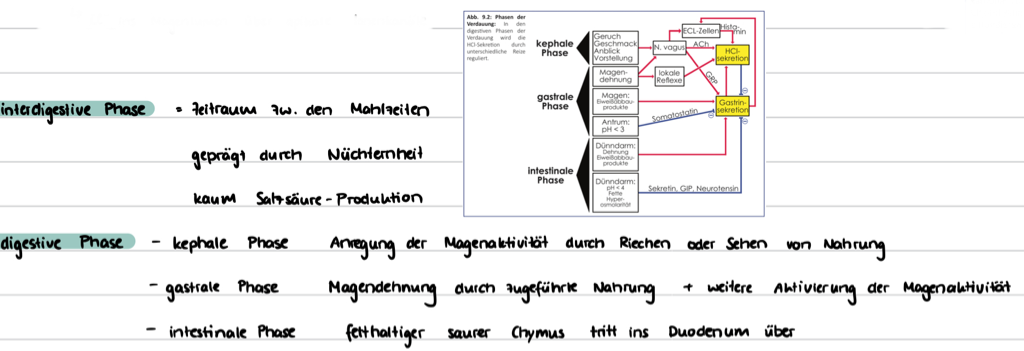 Abb. 9.2: Phasen der
Verdauung: In den
digestiven Phasen der
Verdauung wird die
HCl-Sekretion durch
unterschiedliche Reize
reguliert.
kephale
Phase
Geruch
Geschmack
Anblick
Vorstellung
N. vagus
ECL-Zellen
Histamin
ACh
HCl-
sekretion
GRP
gastrale
Phase
Magen-
dehnung
lokale
Reflexe
Magen:
Eiweißabbau-
produkte
Antrum:
pH < 3
Somatostatin
Gastrin-
sekretion
intestinale
Phase
Dünndarm:
Dehnung
Eiweißabbau-
produkte
Dünndarm:
pH < 4
Fette
Hyper-
osmolarität
Sekretin, GIP, Neurotensin
interdigestive Phase = Zeitraum zw. den Mahlzeiten
geprägt durch Nüchternheit
kaum Salzsäure-Produktion
digestive Phase - kephale Phase Anregung der Magenaktivität durch Riechen oder Sehen von Nahrung
- gastrale Phase Magendehnung durch zugeführte Nahrung + weitere Aktivierung der Magenaktivität
- intestinale Phase fetthaltiger saurer Chymus tritt ins Duodenum über